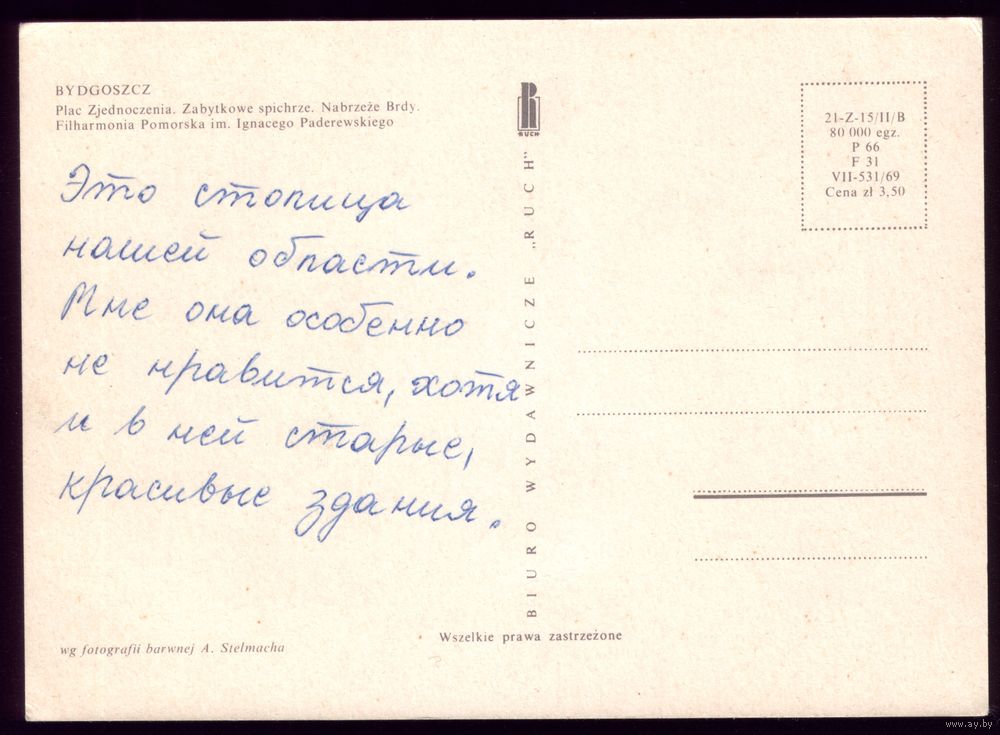 BYDGOSZCZ
Plac Zjednoczenia. Zabytkowe spichrze. Nabrzeże Brdy.
Filharmonia Pomorska im. Ignacego Paderewskiego
Это столица
нашей области.
Мне она особенно
не нравится, хотя
и в ней старые,
красивые здания.
wg fotografii barwnej A. Stelmacha
RUCH
BIURO WYDAWNICZE „RUCH”
Wszelkie prawa zastrzeżone
21-Z-15/II/B
80 000 egz.
P 66
F 31
VII-531/69
Cena zł 3,50
www.ay.by